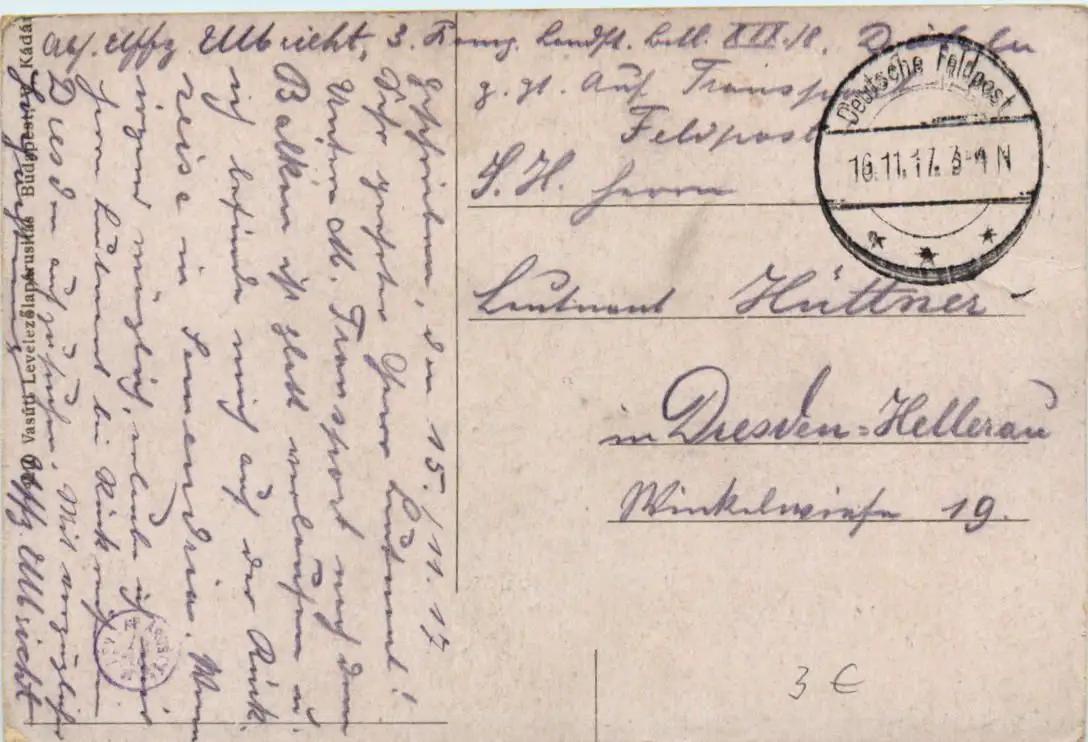 Abs. Uffz. Ulbricht, 3. Komp. Landst. Batl. XIX.18.
z. Zt. Auf Transport
Feldpost
S. H. Herrn
Leutnant Hüttner
in Dresden-Hellerau
Winkelwiese 19.
Deutsche Feldpost
16.11.17. 3-4 N
den 15./11.17
Sehr geehrter Herr Leutnant!
Unser M. Transport nach dem
Balkan ist glatt verlaufen u.
ich befinde mich auf der Rück
reise in Semendria. Wenn
irgend möglich, erlaube ich mir
Herrn Leutnant bei Rück
Dresden aufzusuchen. Mit vorzüglicher
Uffz. Ulbricht
Vasúti Levelezőlapárusítás Budapest Kádár
3 €